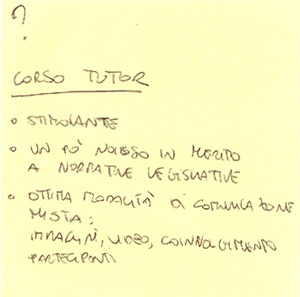 ?
CORSO TUTOR
• STIMOLANTE
• UN PÒ NOIOSO IN MERITO
A NORMATIVE LEGISLATIVE
• OTTIMA MODALITÀ DI COMUNICAZIONE
MISTA:
IMMAGINI, VIDEO, COINVOLGIMENTO
PARTECIPANTI